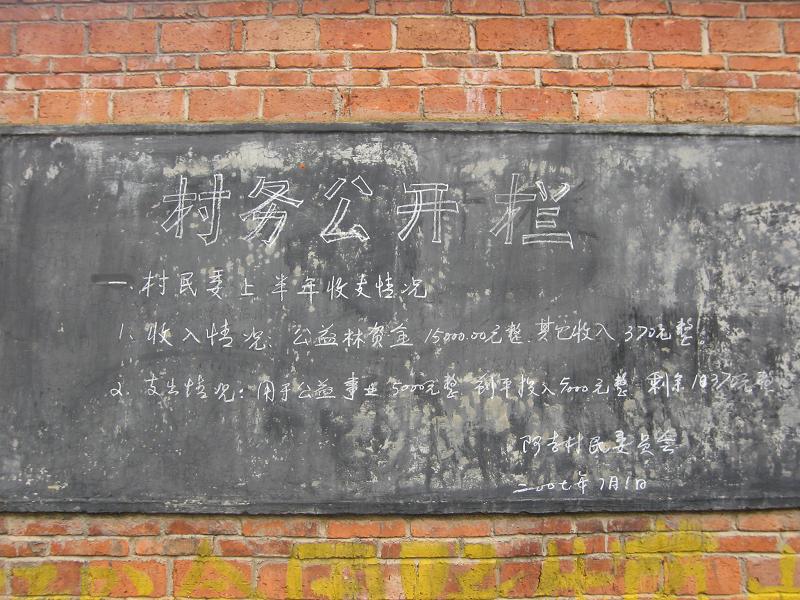 村务公开栏
一、村民委上半年收支情况
1、收入情况：公益林资金15000.00元整、其它收入370元整。
2、支出情况：用于公益事业5000元整 投入5000元整 剩余
阿吉村民委员会
二00七年7月1日